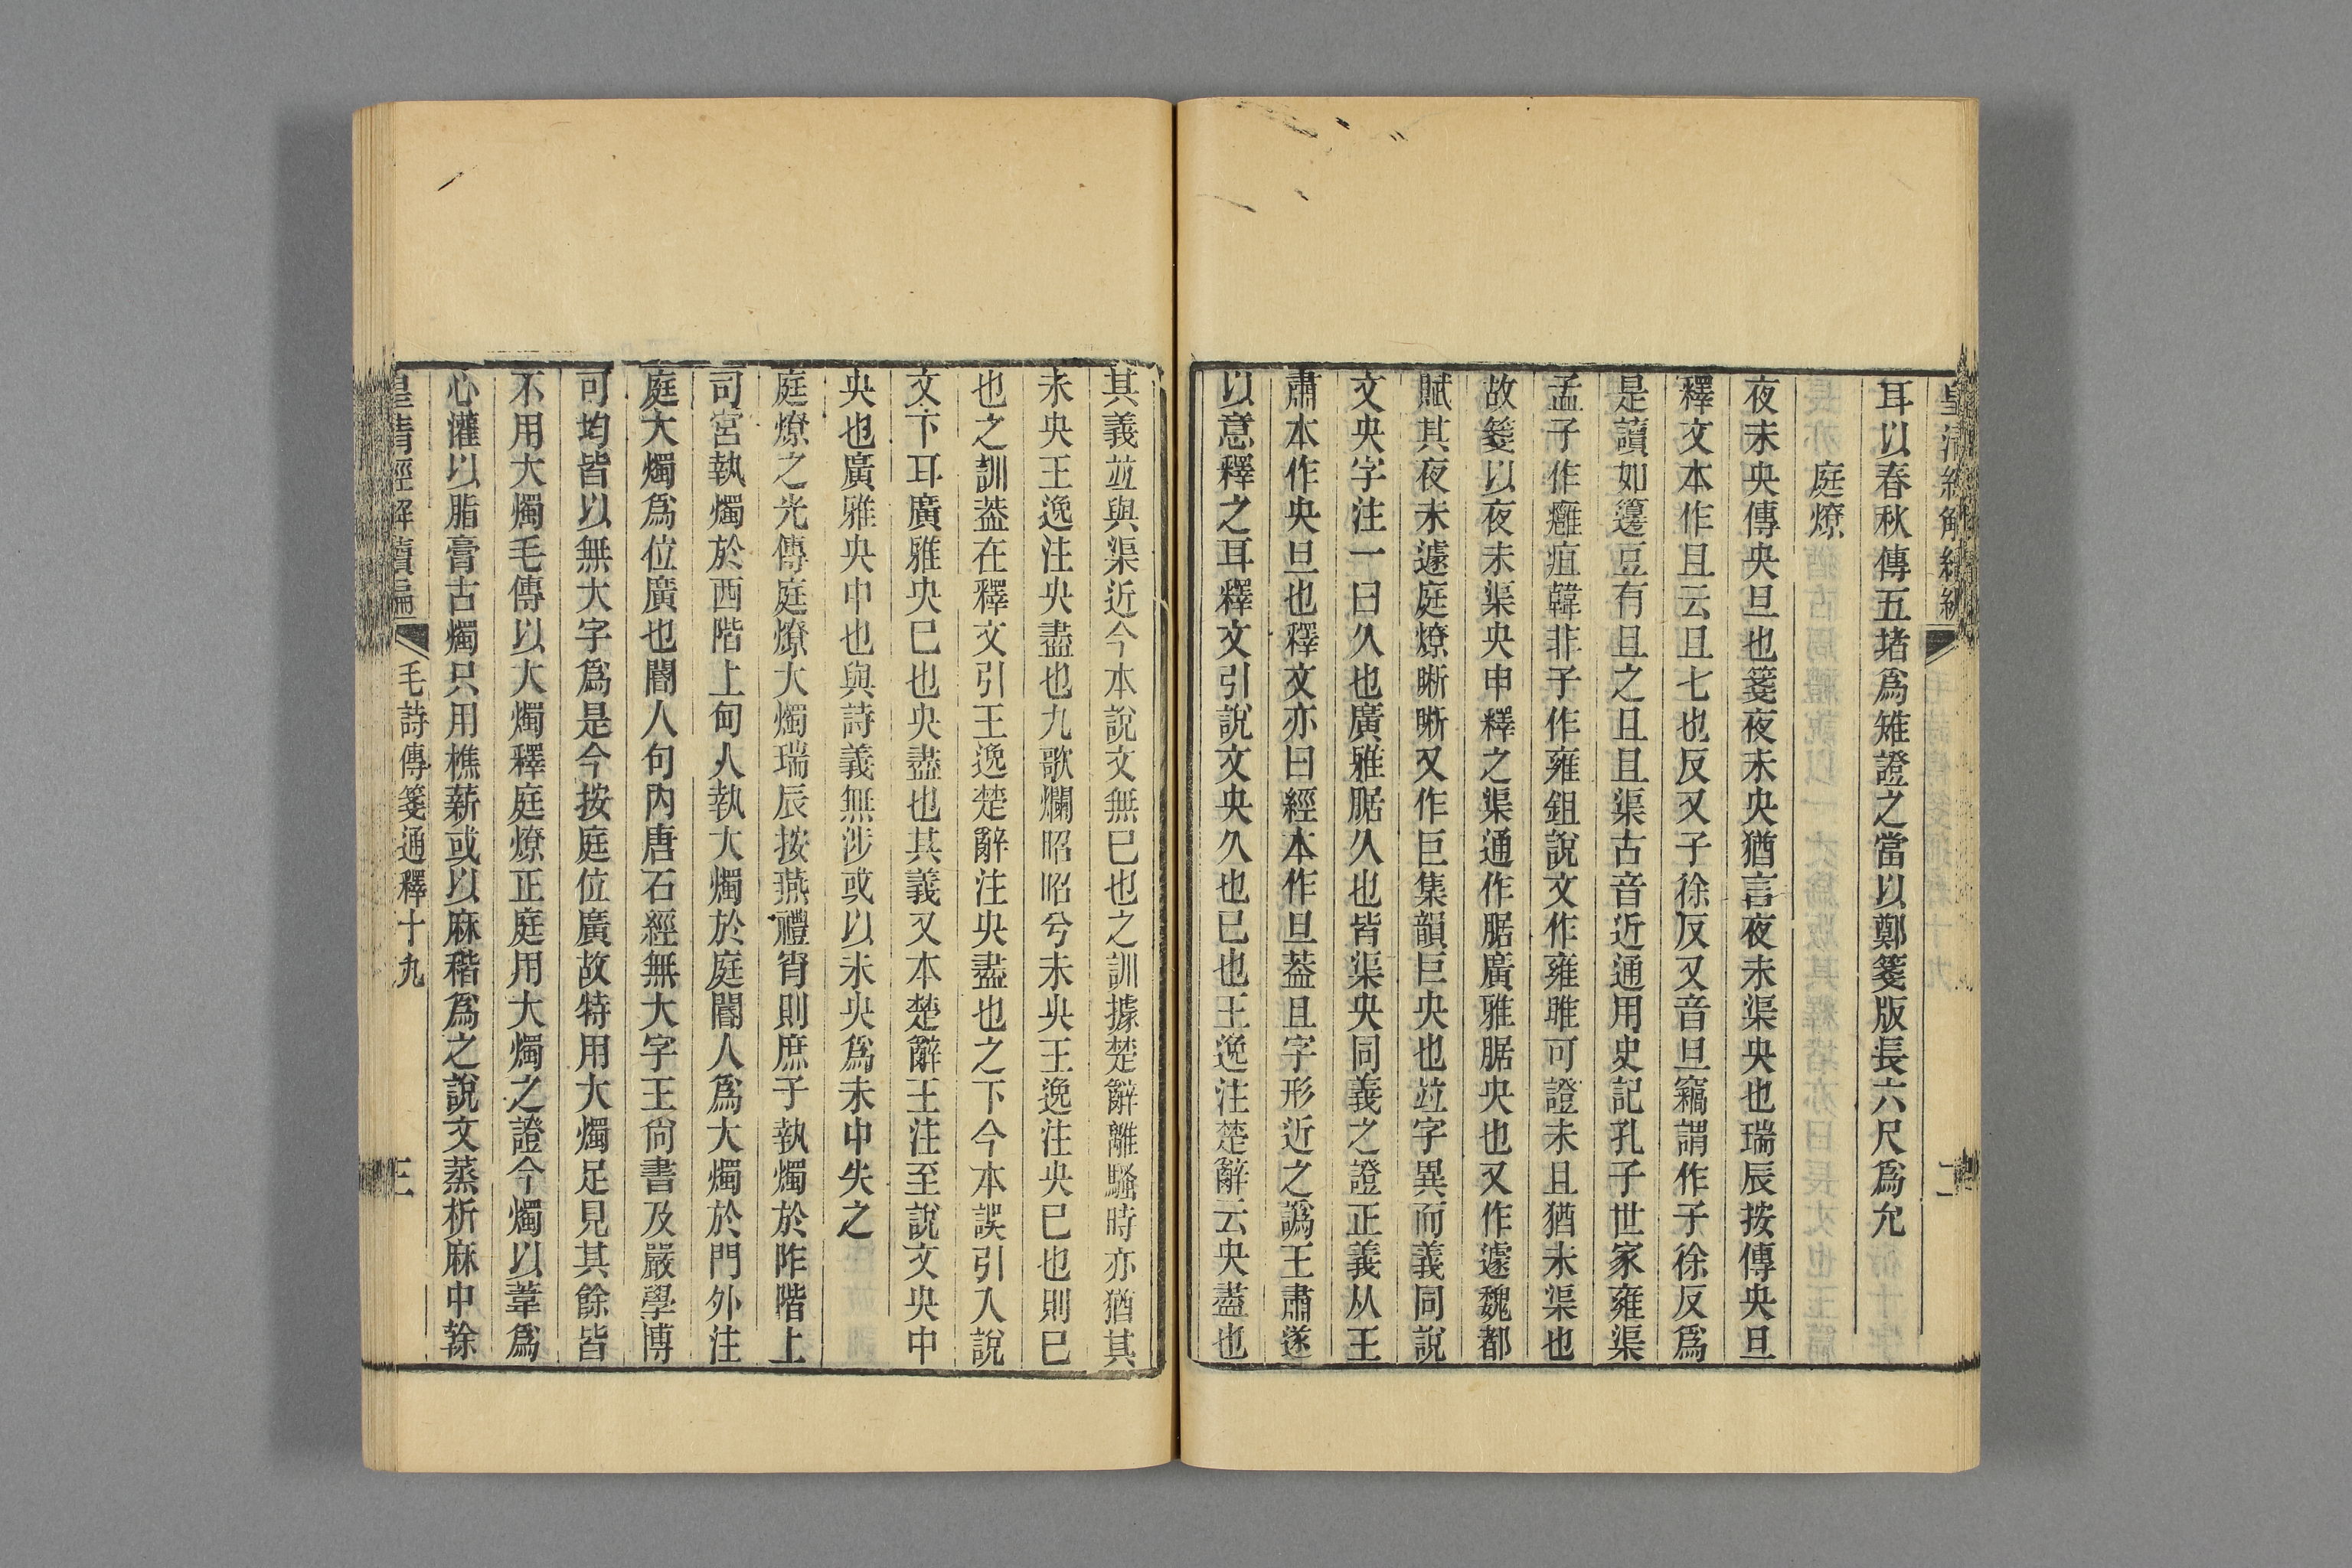 耳以春秋傳五堵爲雉證之當以鄭箋版長六尺爲允
庭燎
夜未央傳央旦也箋夜未央猶言夜未渠央也瑞辰按傳央旦
釋文本作且云且七也反又子徐反又音旦竊謂作子徐反爲
是讀如籩豆有且之且且渠古音近通用史記孔子世家雍渠
孟子作癰疽韓非子作雍鉏說文作雍雎可證未且猶未渠也
故箋以夜未渠央申釋之渠通作腒廣雅腒央也又作遽魏都
賦其夜未遽庭燎晣晣又作巨集韻巨央也竝字異而義同說
文央字注一曰久也廣雅腒久也皆渠央同義之證正義从王
肅本作央旦也釋文亦曰經本作旦葢且字形近之譌王肅遂
以意釋之耳釋文引說文央久也已也王逸注楚辭云央盡也
其義竝與渠近今本說文無巳也之訓據楚辭離騷時亦猶其
未央王逸注央盡也九歌爛昭昭兮未央王逸注央巳也則巳
也之訓葢在釋文引王逸楚辭注央盡也之下今本誤引入說
文下耳廣雅央巳也央盡也其義又本楚辭王注至說文央中
央也廣雅央中也與詩義無涉或以未央爲未中失之
庭燎之光傳庭燎大燭瑞辰按燕禮宵則庶子執燭於阼階上
司宮執燭於西階上甸人執大燭於庭閽人爲大燭於門外注
庭大燭爲位廣也閽人句內唐石經無大字王尙書及嚴學博
可均皆以無大字爲是今按庭位廣故特用大燭足見其餘皆
不用大燭毛傳以大燭釋庭燎正庭用大燭之證今燭以葦爲
心灌以脂膏古燭只用樵薪或以麻稭爲之說文蒸析麻中榦
皇清經解續編 毛詩傳箋通釋十九 三